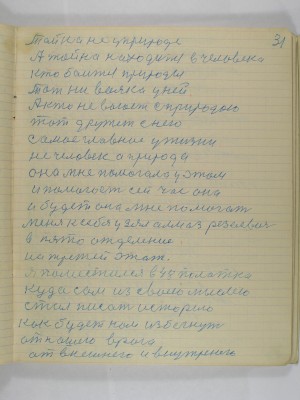 31
Тайна не уприроде
А тайна находитя в человека
кто боится природы
Тот ни всяка дней
А кто не воюет с природою
тот дружит с нею
самое главное у жизни
не человек а природа
она мне помогала у этом
и помогает сей час она
и будет она мне помогать
меня к себя узял алмаз
в пято отделение.
на пустей этаж.
я поместился в палатка
куда сам из своею мыслию
стал писат историю
как будет нам избегнут
от нашего врага
от внешнего и внутренго